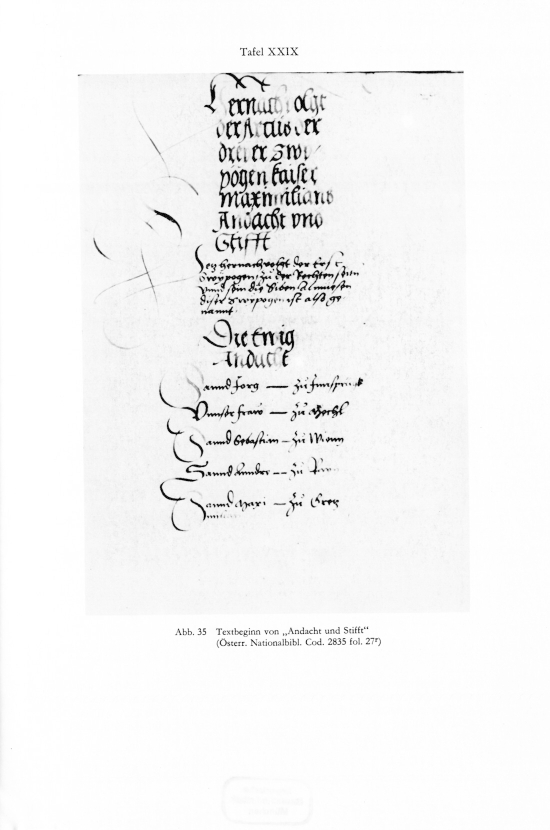 Tafel XXIX
Hernach folgt
der Artus der
dreier Zwi
pögen kaiser
maxmilians
Andacht vnd
Stifft
hernachvolgt der Erst
zwypogen, zu der Rechten seiten
Vnnd sein die Siben
diser zwypogen ist also ge
nannt.
Die Ewig
Andacht
Sannd Jörg — zu Innspruck
Vnnser fraw — zu
Sannd Sebastian — zu Wienn
Sannd Anndre — zu
Sannd — zu Gretz
Abb. 35 Textbeginn von „Andacht und Stifft“
(Österr. Nationalbibl. Cod. 2835 fol. 27r)